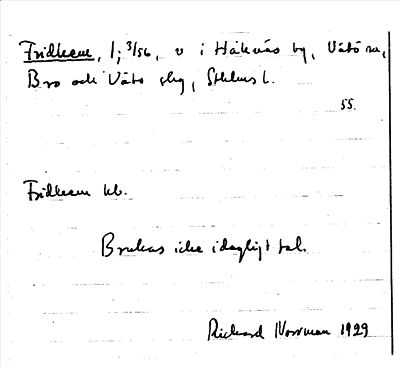 Fridhem, 1; 3/56, v i Håknäs by, Vätö sn,
Bro och Vätö skg, Sthlms l.
55.
Fridhem kb.
Brukas icke i dagligt tal.
Richard Norrman 1929